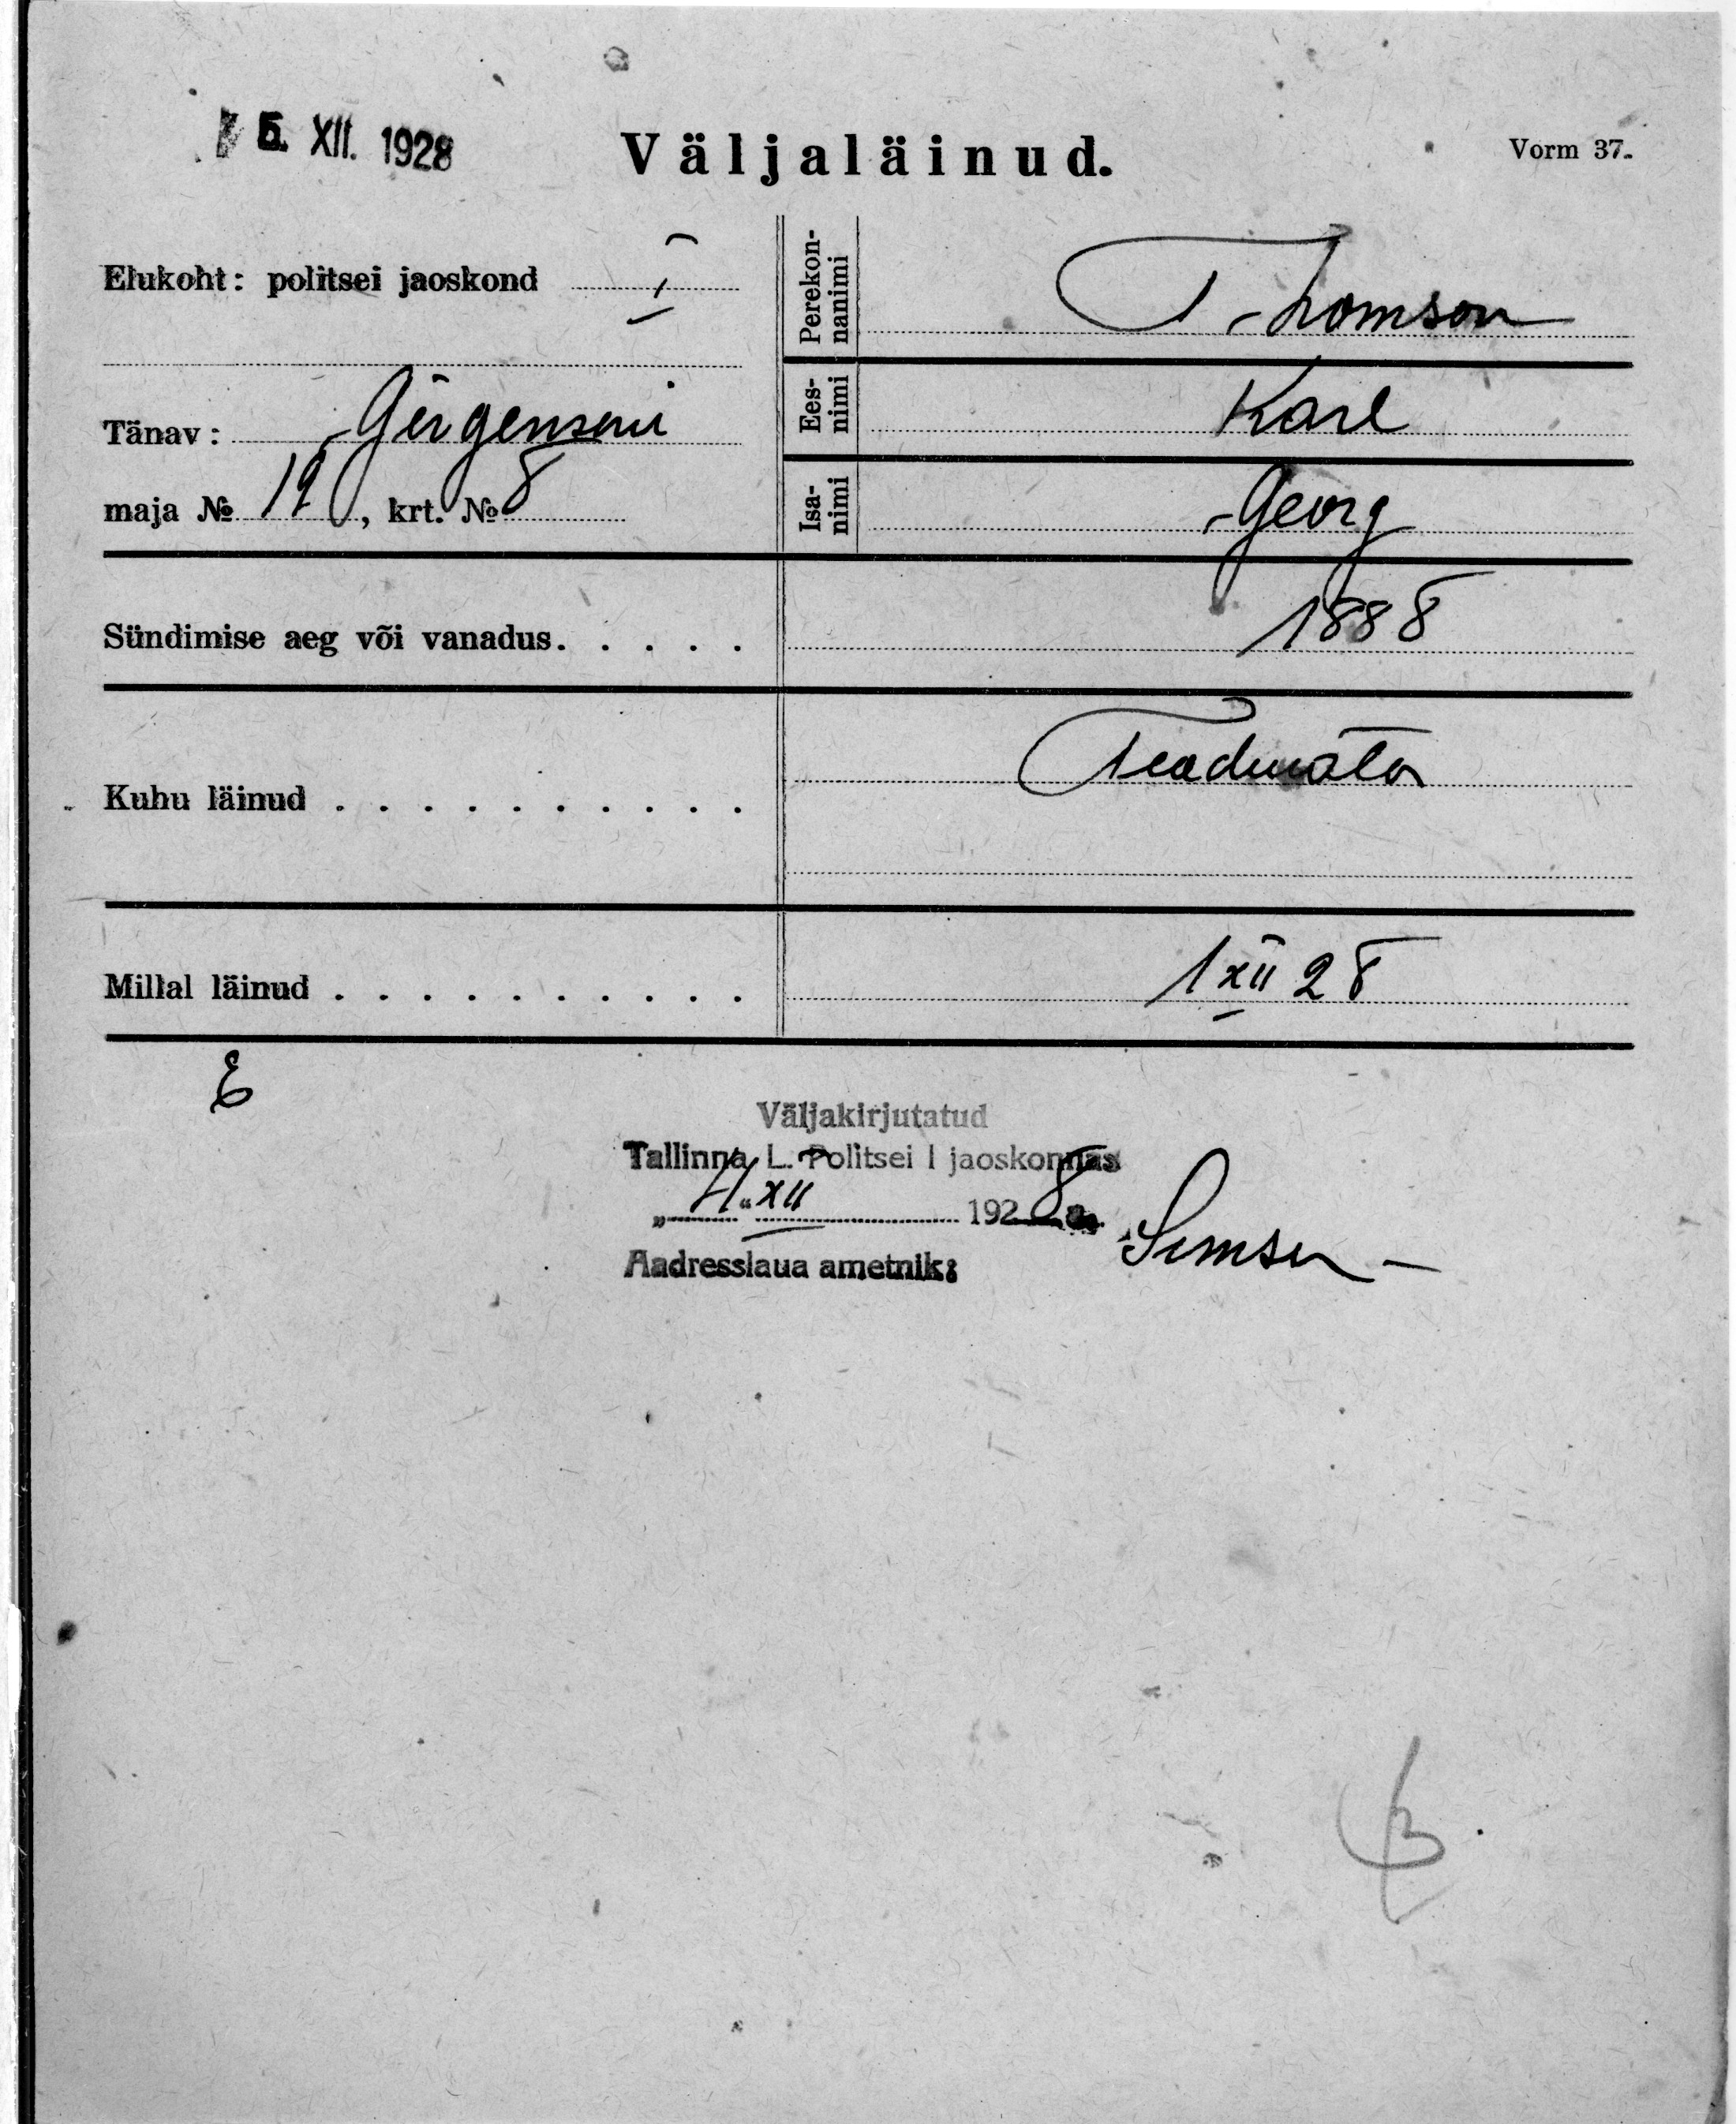 5. XII. 1928
Väljaläinud.
Vorm 37.
Elukoht: politsei jaoskond I
Perekon-
nanimi
Thomson
Tänav: Girgensoni
Ees-
nimi
Karl
maja № 12, krt. № 8
Isa-
nimi
Georg
Sündimise aeg või vanadus. . . . . 1888
Kuhu läinud . . . . . . . . . . Teadmata
Millal läinud . . . . . . . . . . 1 XII 28
E
Väljakirjutatud
Tallinna L. Politsei I jaoskonnas
„4“ XII 1928 a.
Aadresslaua ametnik: